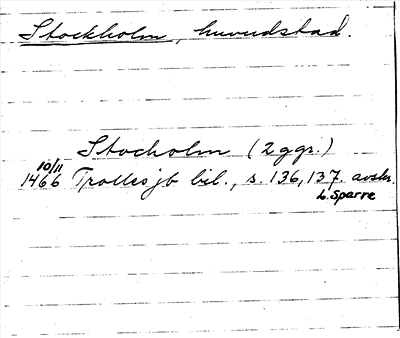 Stockholm, huvudstad.
Stocholm (2 ggr.)
10/11
1466 Trolles jb bil., s. 136, 137. avskr.
L. Sparre